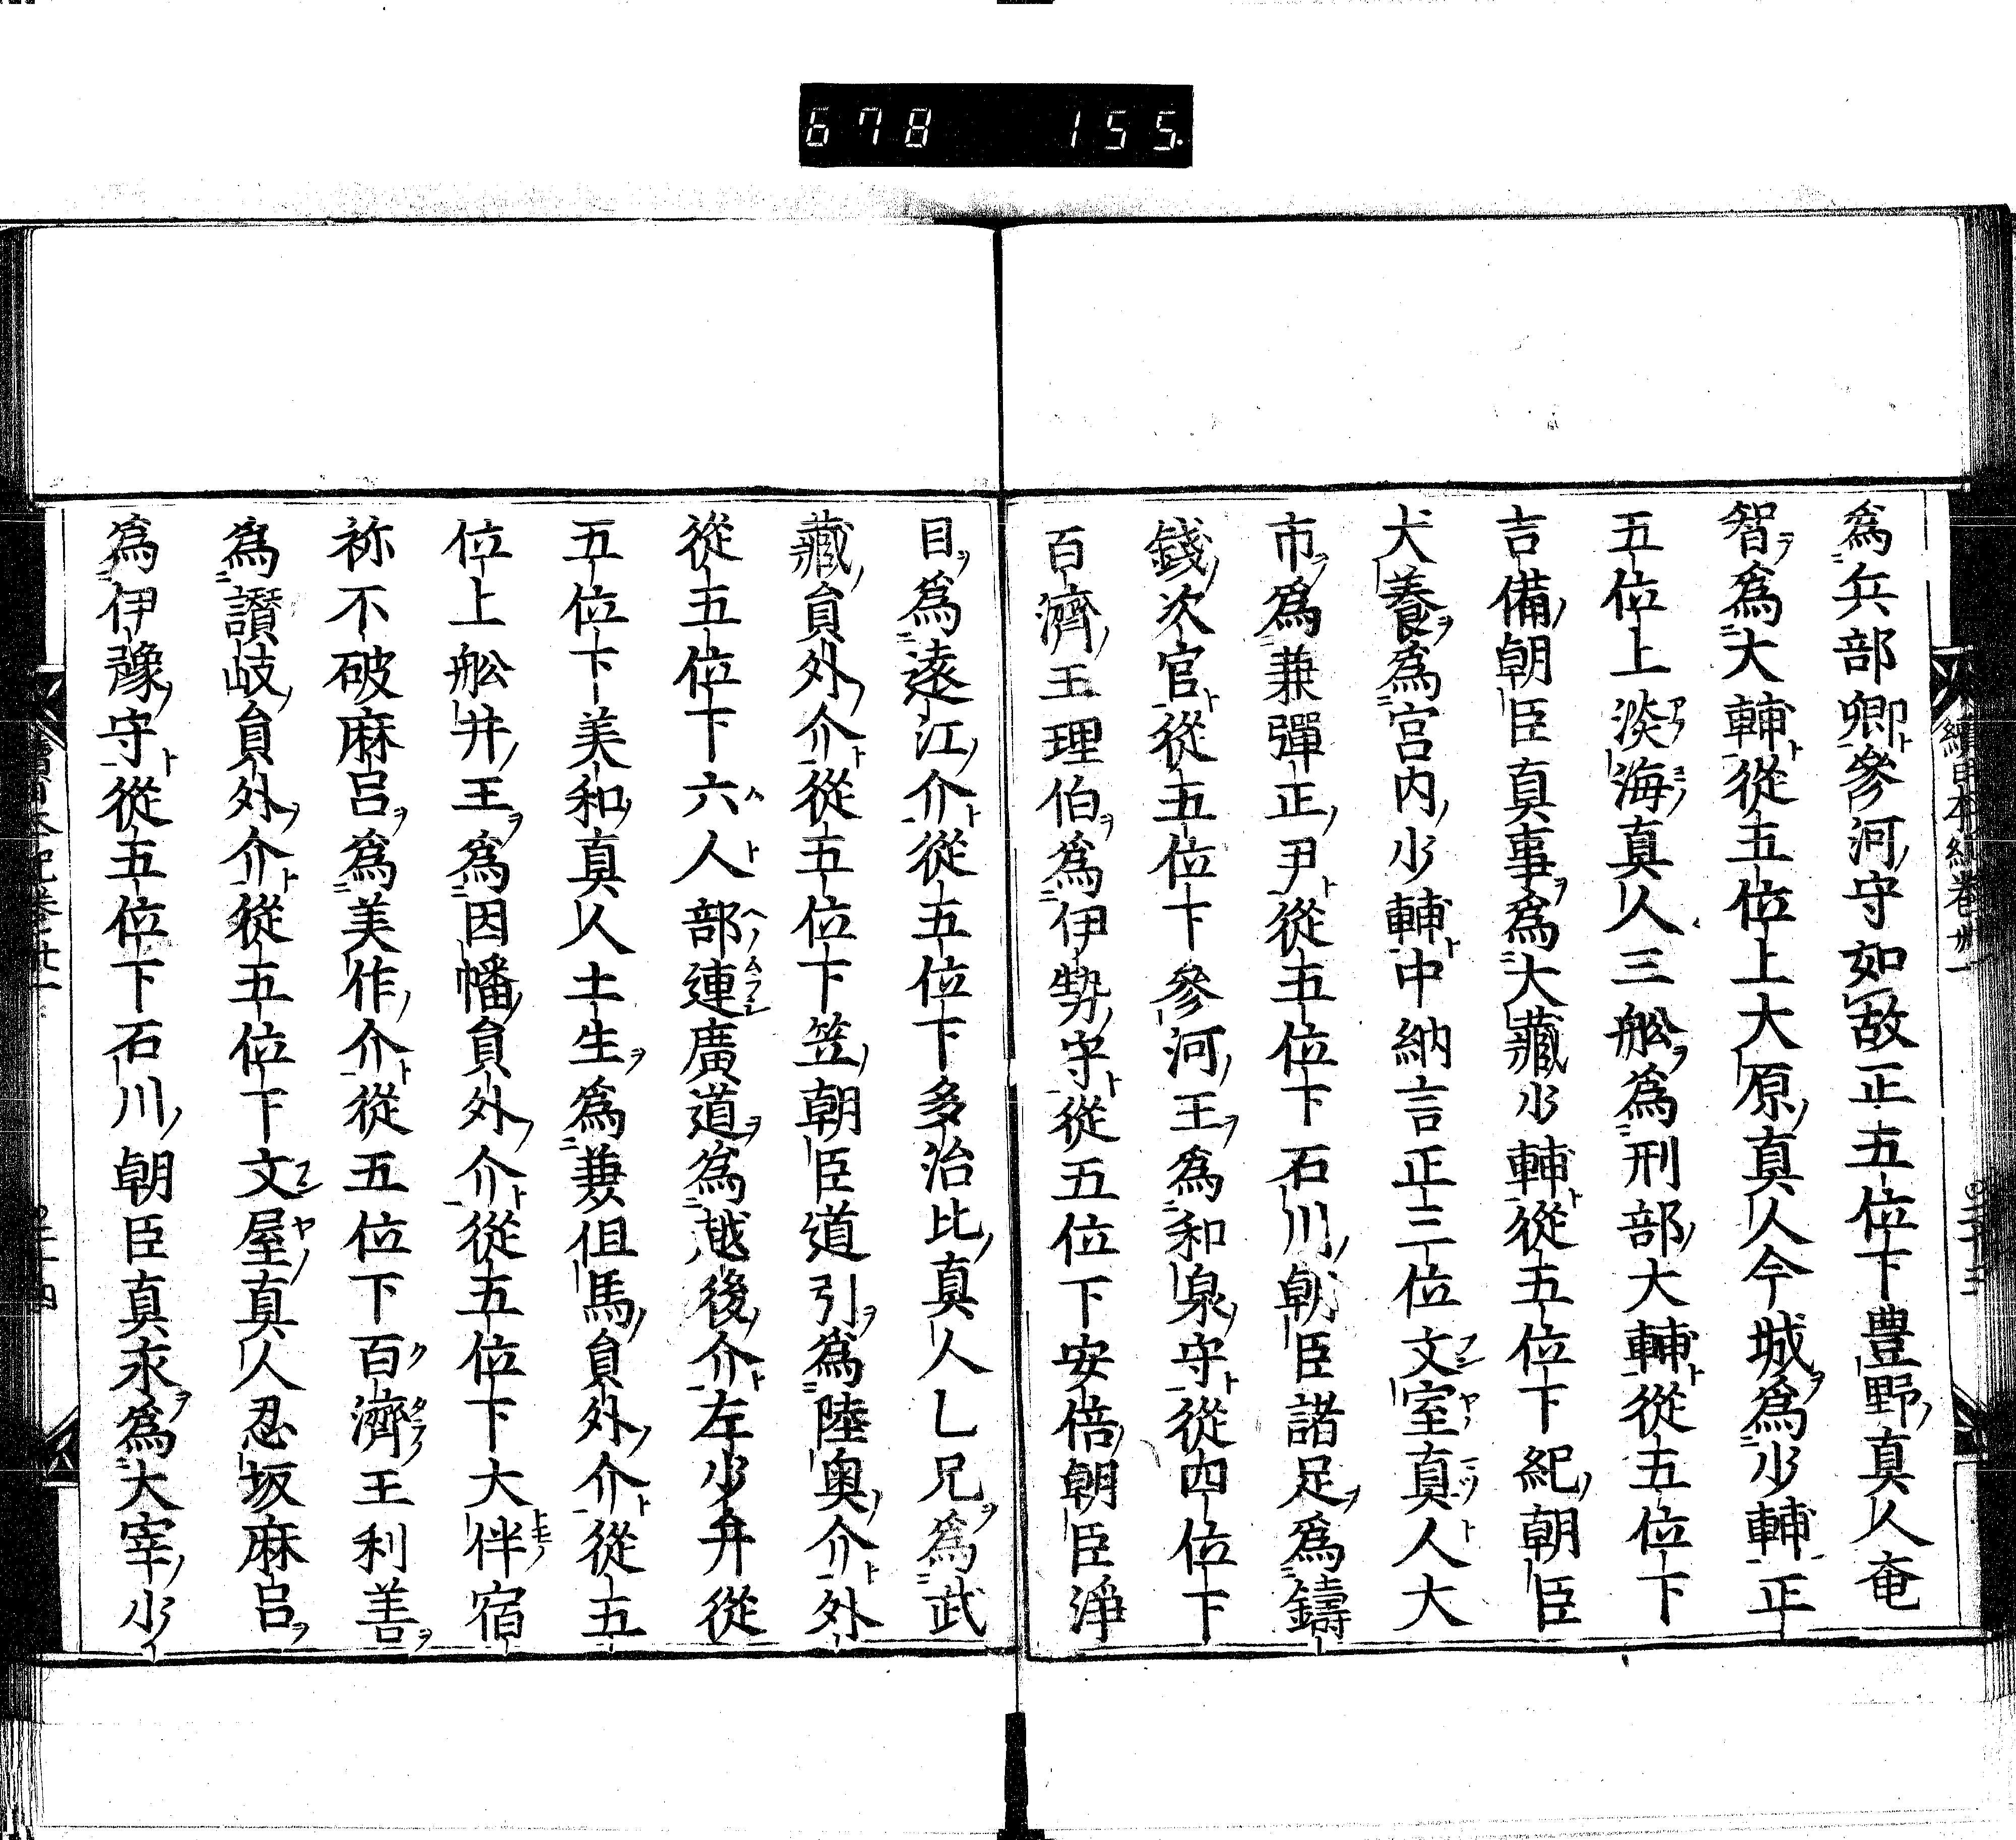 678 155.
爲兵部卿參河守如故正五位下豊野真人奄
智爲大輔從五位上大原真人今城爲少輔正
五位上淡海真人三舩爲刑部大輔從五位下
吉備朝臣真事爲大藏少輔從五位下紀朝臣
犬養爲宮内少輔中納言正三位文室真人大
市爲兼彈正尹從五位下石川朝臣諸足爲鑄
錢次官從五位下參河王爲和泉守從四位下
百濟王理伯爲伊勢守從五位下安倍朝臣淨
目爲遠江介從五位下多治比真人乚兄爲武
藏負外介從五位下笠朝臣道引爲陸奥介外
從五位下六人部連廣道爲越後介左少弁從
五位下美和真人土生爲兼但馬負外介從五
位上舩井王爲因幡負外介從五位下大伴宿
祢不破麻呂爲美作介從五位下百濟王利善
爲讃岐負外介從五位下文屋真人忍坂麻呂
爲伊豫守從五位下石川朝臣真永爲大宰少